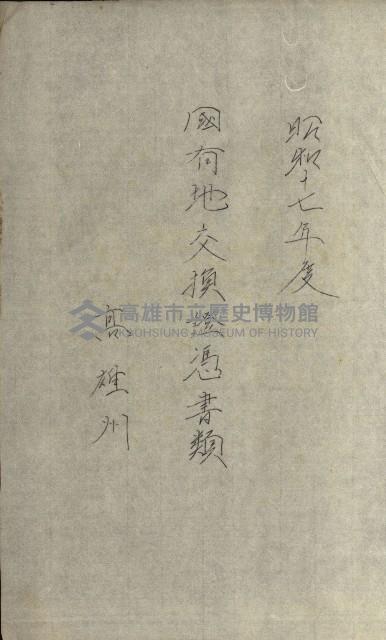 昭和十七年度
國有地交換證憑書類
高雄州
高雄市立歷史博物館
KAOHSIUNG MUSEUM OF HISTORY